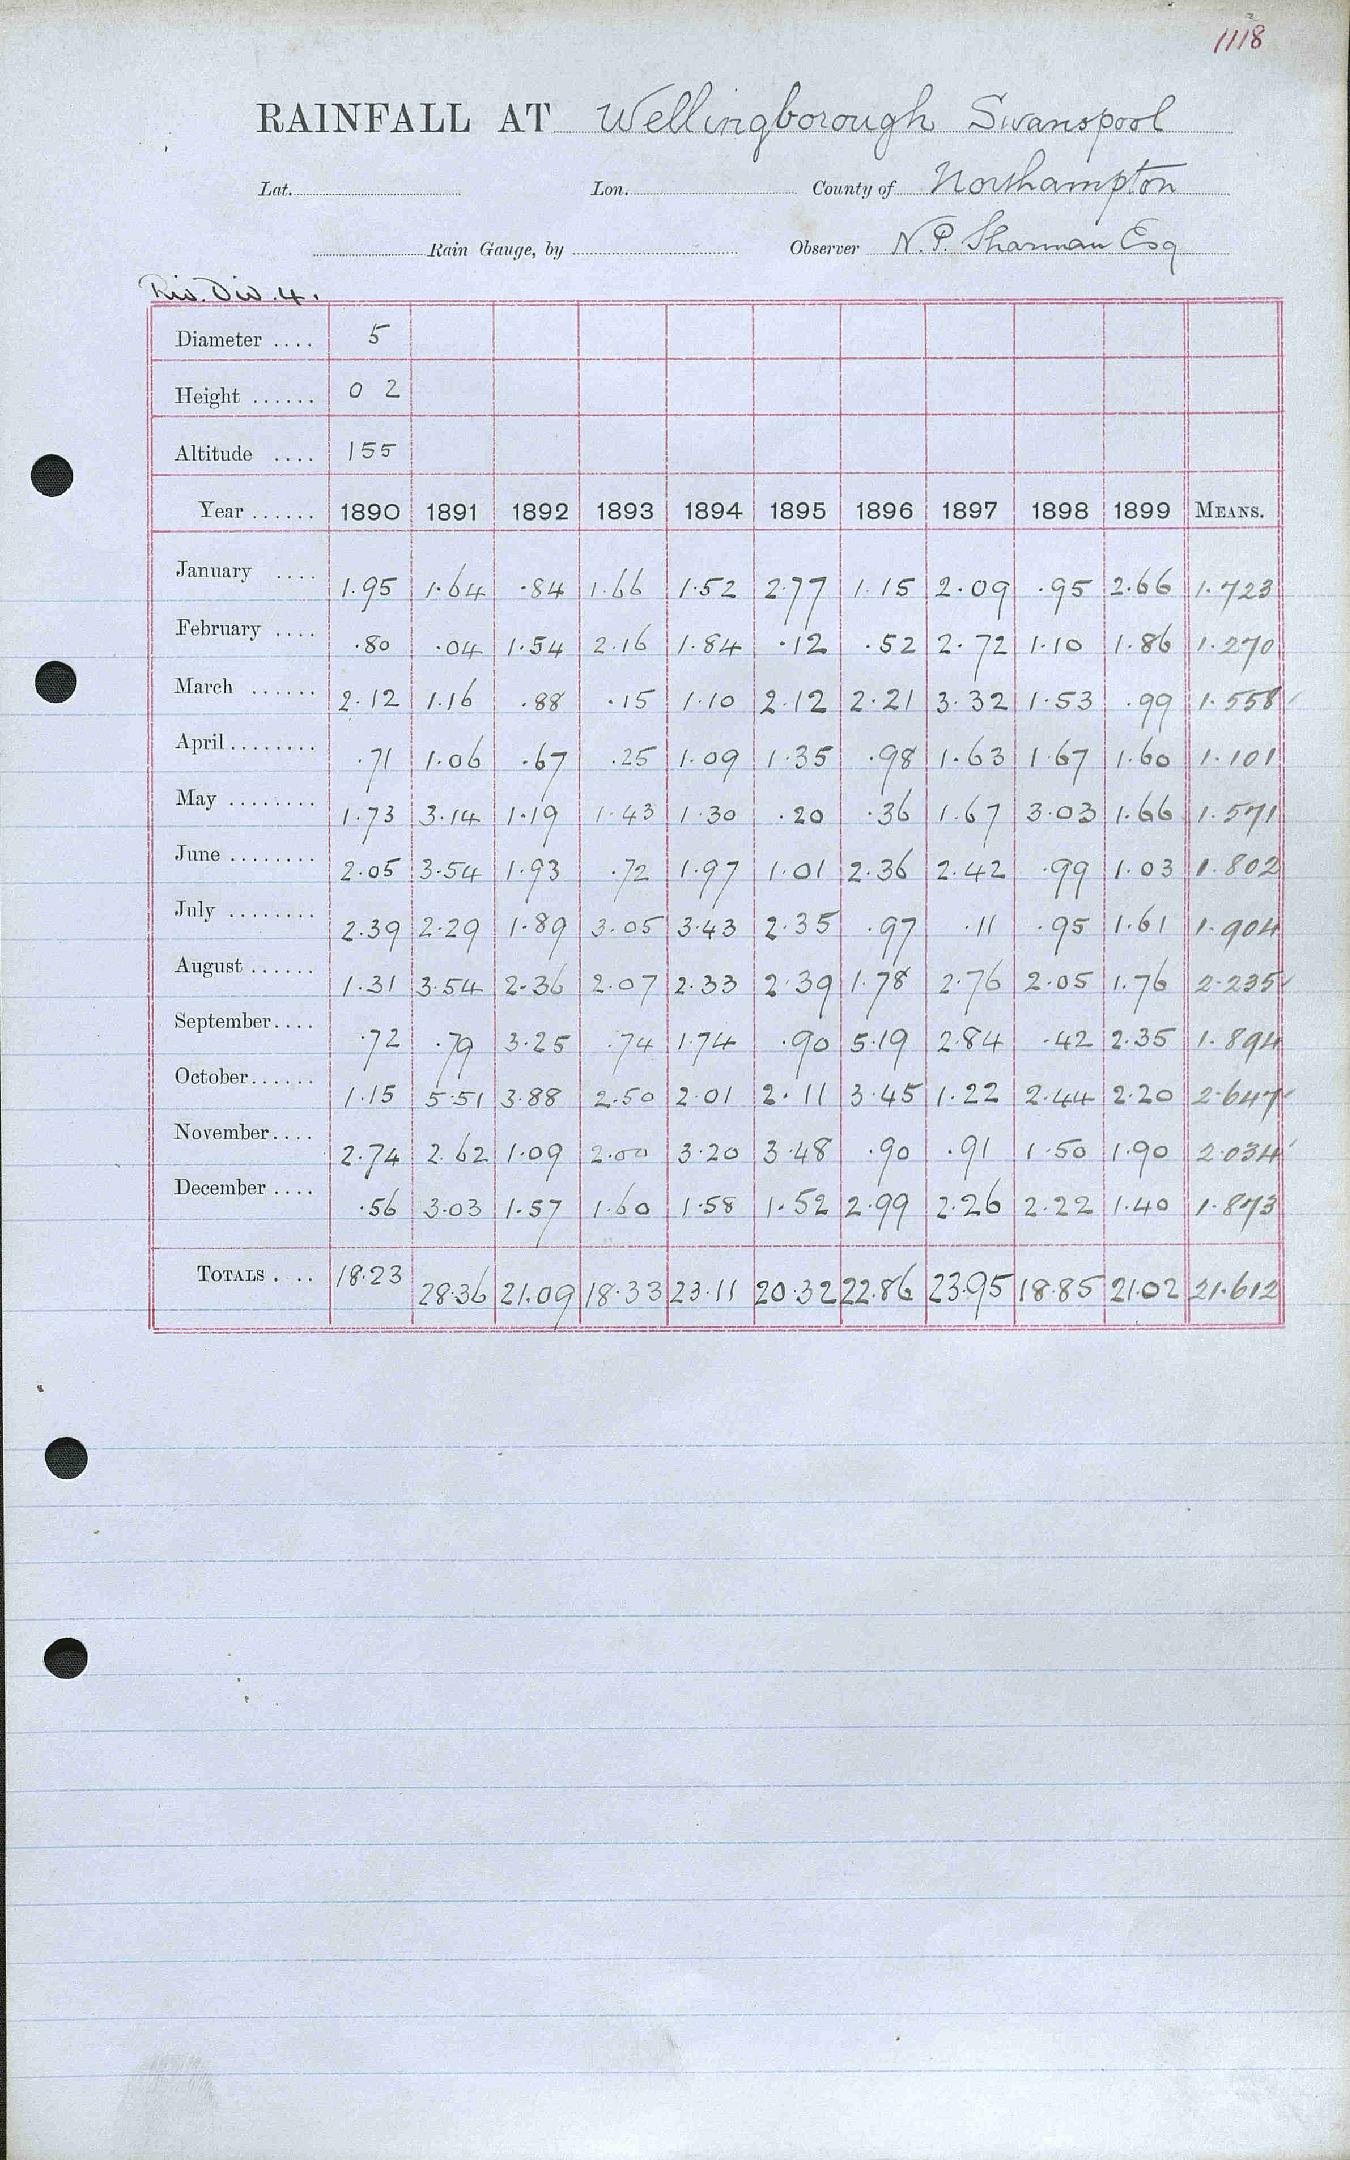 1118
RAINFALL AT Wellingborough Swanspool
Lat. Lon. County of Northampton
Rain Gauge, by Observer N. P. Sharman Esq
Riv. Div. 4.
Diameter .... 5
Height ...... 0 2
Altitude .... 155
Year ...... 1890 1891 1892 1893 1894 1895 1896 1897 1898 1899 MEANS.
January .... 1.95 1.64 .84 1.66 1.52 2.77 1.15 2.09 .95 2.66 1.723
February .... .80 .04 1.54 2.16 1.84 .12 .52 2.72 1.10 1.86 1.270
March ...... 2.12 1.16 .88 .15 1.10 2.12 2.21 3.32 1.53 .99 1.558
April ........ .71 1.06 .67 .25 1.09 1.35 .98 1.63 1.67 1.60 1.101
May ........ 1.73 3.14 1.19 1.43 1.30 .20 .36 1.67 3.03 1.66 1.571
June ........ 2.05 3.54 1.93 .72 1.97 1.01 2.36 2.42 .99 1.03 1.802
July ........ 2.39 2.29 1.89 3.05 3.43 2.35 .97 .11 .95 1.61 1.904
August ...... 1.31 3.54 2.36 2.07 2.33 2.39 1.78 2.76 2.05 1.76 2.235
September .... .72 .79 3.25 .74 1.74 .90 5.19 2.84 .42 2.35 1.894
October ...... 1.15 5.51 3.88 2.50 2.01 2.11 3.45 1.22 2.44 2.20 2.647
November .... 2.74 2.62 1.09 2.00 3.20 3.48 .90 .91 1.50 1.90 2.034
December .... .56 3.03 1.57 1.60 1.58 1.52 2.99 2.26 2.22 1.40 1.873
TOTALS .... 18.23 28.36 21.09 18.33 23.11 20.32 22.86 23.95 18.85 21.02 21.612